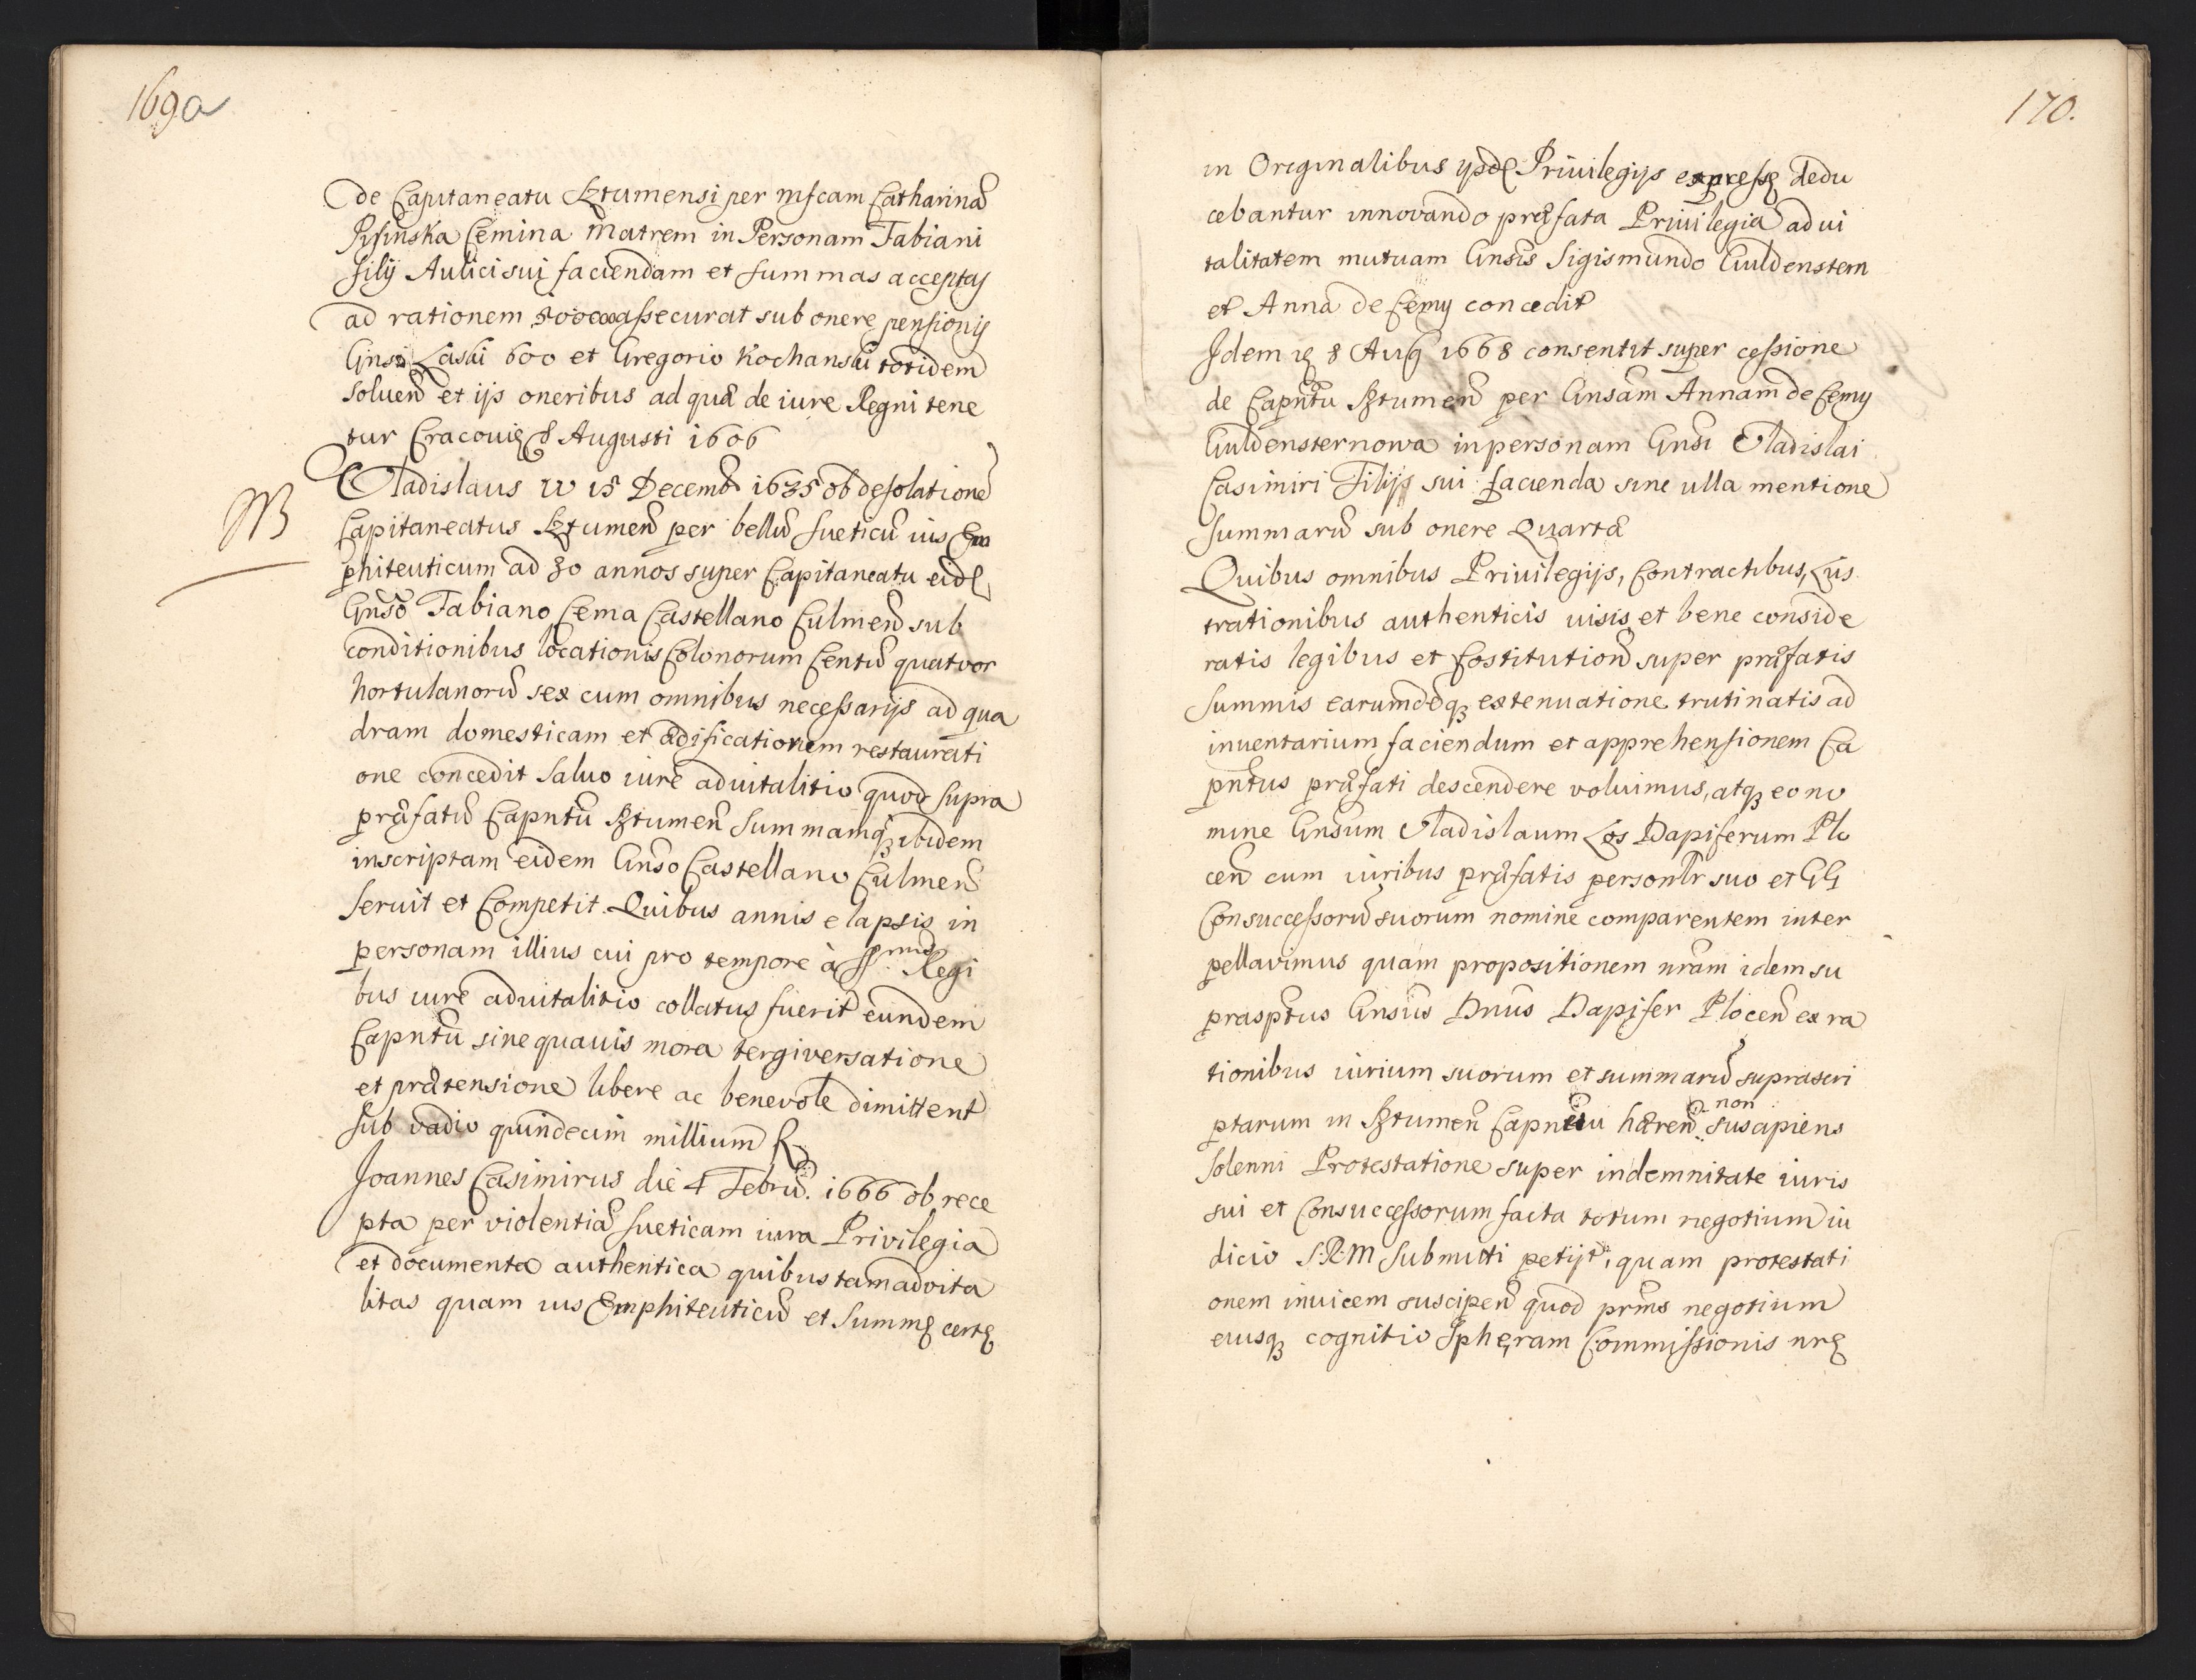 169a
de Capitaneatu Sztumensi per mfcam Catharinā
Pisinska Cemina Matrem in Personam Fabiani
filij Aulici sui faciendam et summas acceptas
ad rationem assecurat sub onere pensionis
Gnsi Laski 600 et Gregorio Kochanski totidem
soluen̄ et ijs oneribus ad quæ de iure Regni tene
tur Cracouię 8 Augusti 1606
NB
Vladislaus IV 15 Decemb 1635 ob desolationē
Capitaneatus Sztumen̄ per bellū sueticū ius Em
phiteuticum ad 30 annos super Capitaneatu eid
Gnso Fabiano Cema Castellano Culmen̄ sub
conditionibus locationis Colonorum Centū quatuor
hortulanorū sex cum omnibus necessarijs ad qua
dram domesticam et ædificationem restaurati
one concedit salvo iure advitalitio quod supra
præfatū Capntū Sztumen̄ summamq₃ ibidem
inscriptam eidem Gnso Castellano Culmen̄
seruit et Competit Quibus annis elapsis in
personam illius cui pro tempore à Regi
bus iure advitalitio collatus fuerit eundem
Capntū sine quauis mora tergiversatione
et prætensione libere ac benevole dimittent
sub vadio quindecim millium
Joannes Casimirus die 4 Febru. 1666 ob rece
pta per violentiā sueticam iura Privilegia
et documenta authentica quibus tam advita
litas quam ius Emphiteuticū et Summę certę
170.
in Originalibus Priuilegijs expressę dedu
cebantur innovando præfata Priuilegia ad ui
talitatem mutuam Gnsis Sigismundo Guldenstern
et Anna de Cemy concedit
Idem 8 Aug 1668 consentit super cessione
de Capntu Sztumen̄ per Gnsam Annam de Cemy
Guldensternowa in personam Gnsi Vladislai
Casimiri Filij sui facienda sine ulla mentione
summarū sub onere Quartæ
Quibus omnibus Priuilegijs, Contractibus, Lus
trationibus authenticis uisis et bene conside
ratis legibus et Costitution̄ super præfatis
summis earumdēq₃ extenuatione trutinatis ad
inuentarium faciendum et apprehensionem Ca
pntus præfati descendere voluimus, atq₃ eo no
mine Gnsum Vladislaum Los Dapiferum Plo
cen̄ cum iuribus præfatis personlr suo et GG
Consuccessorū suorum nomine comparentem inter
pellavimus quam propositionem nram idem su
prasptus Gnsus Dnus Dapifer Plocen̄ ex ra
tionibus iurium suorum et summarū suprascri
ptarum in Sztumen̄ Capntu hæren̄ non susapiens
solenni Protestatione super indemnitate iuris
sui et Consuccessorum facta totum negotium iu
dicio S.R.M submitti petijt, quam protestati
onem inuicem suscipen̄ quod prms negotium
eiusq₃ cognitio Spheram Commissionis nrę